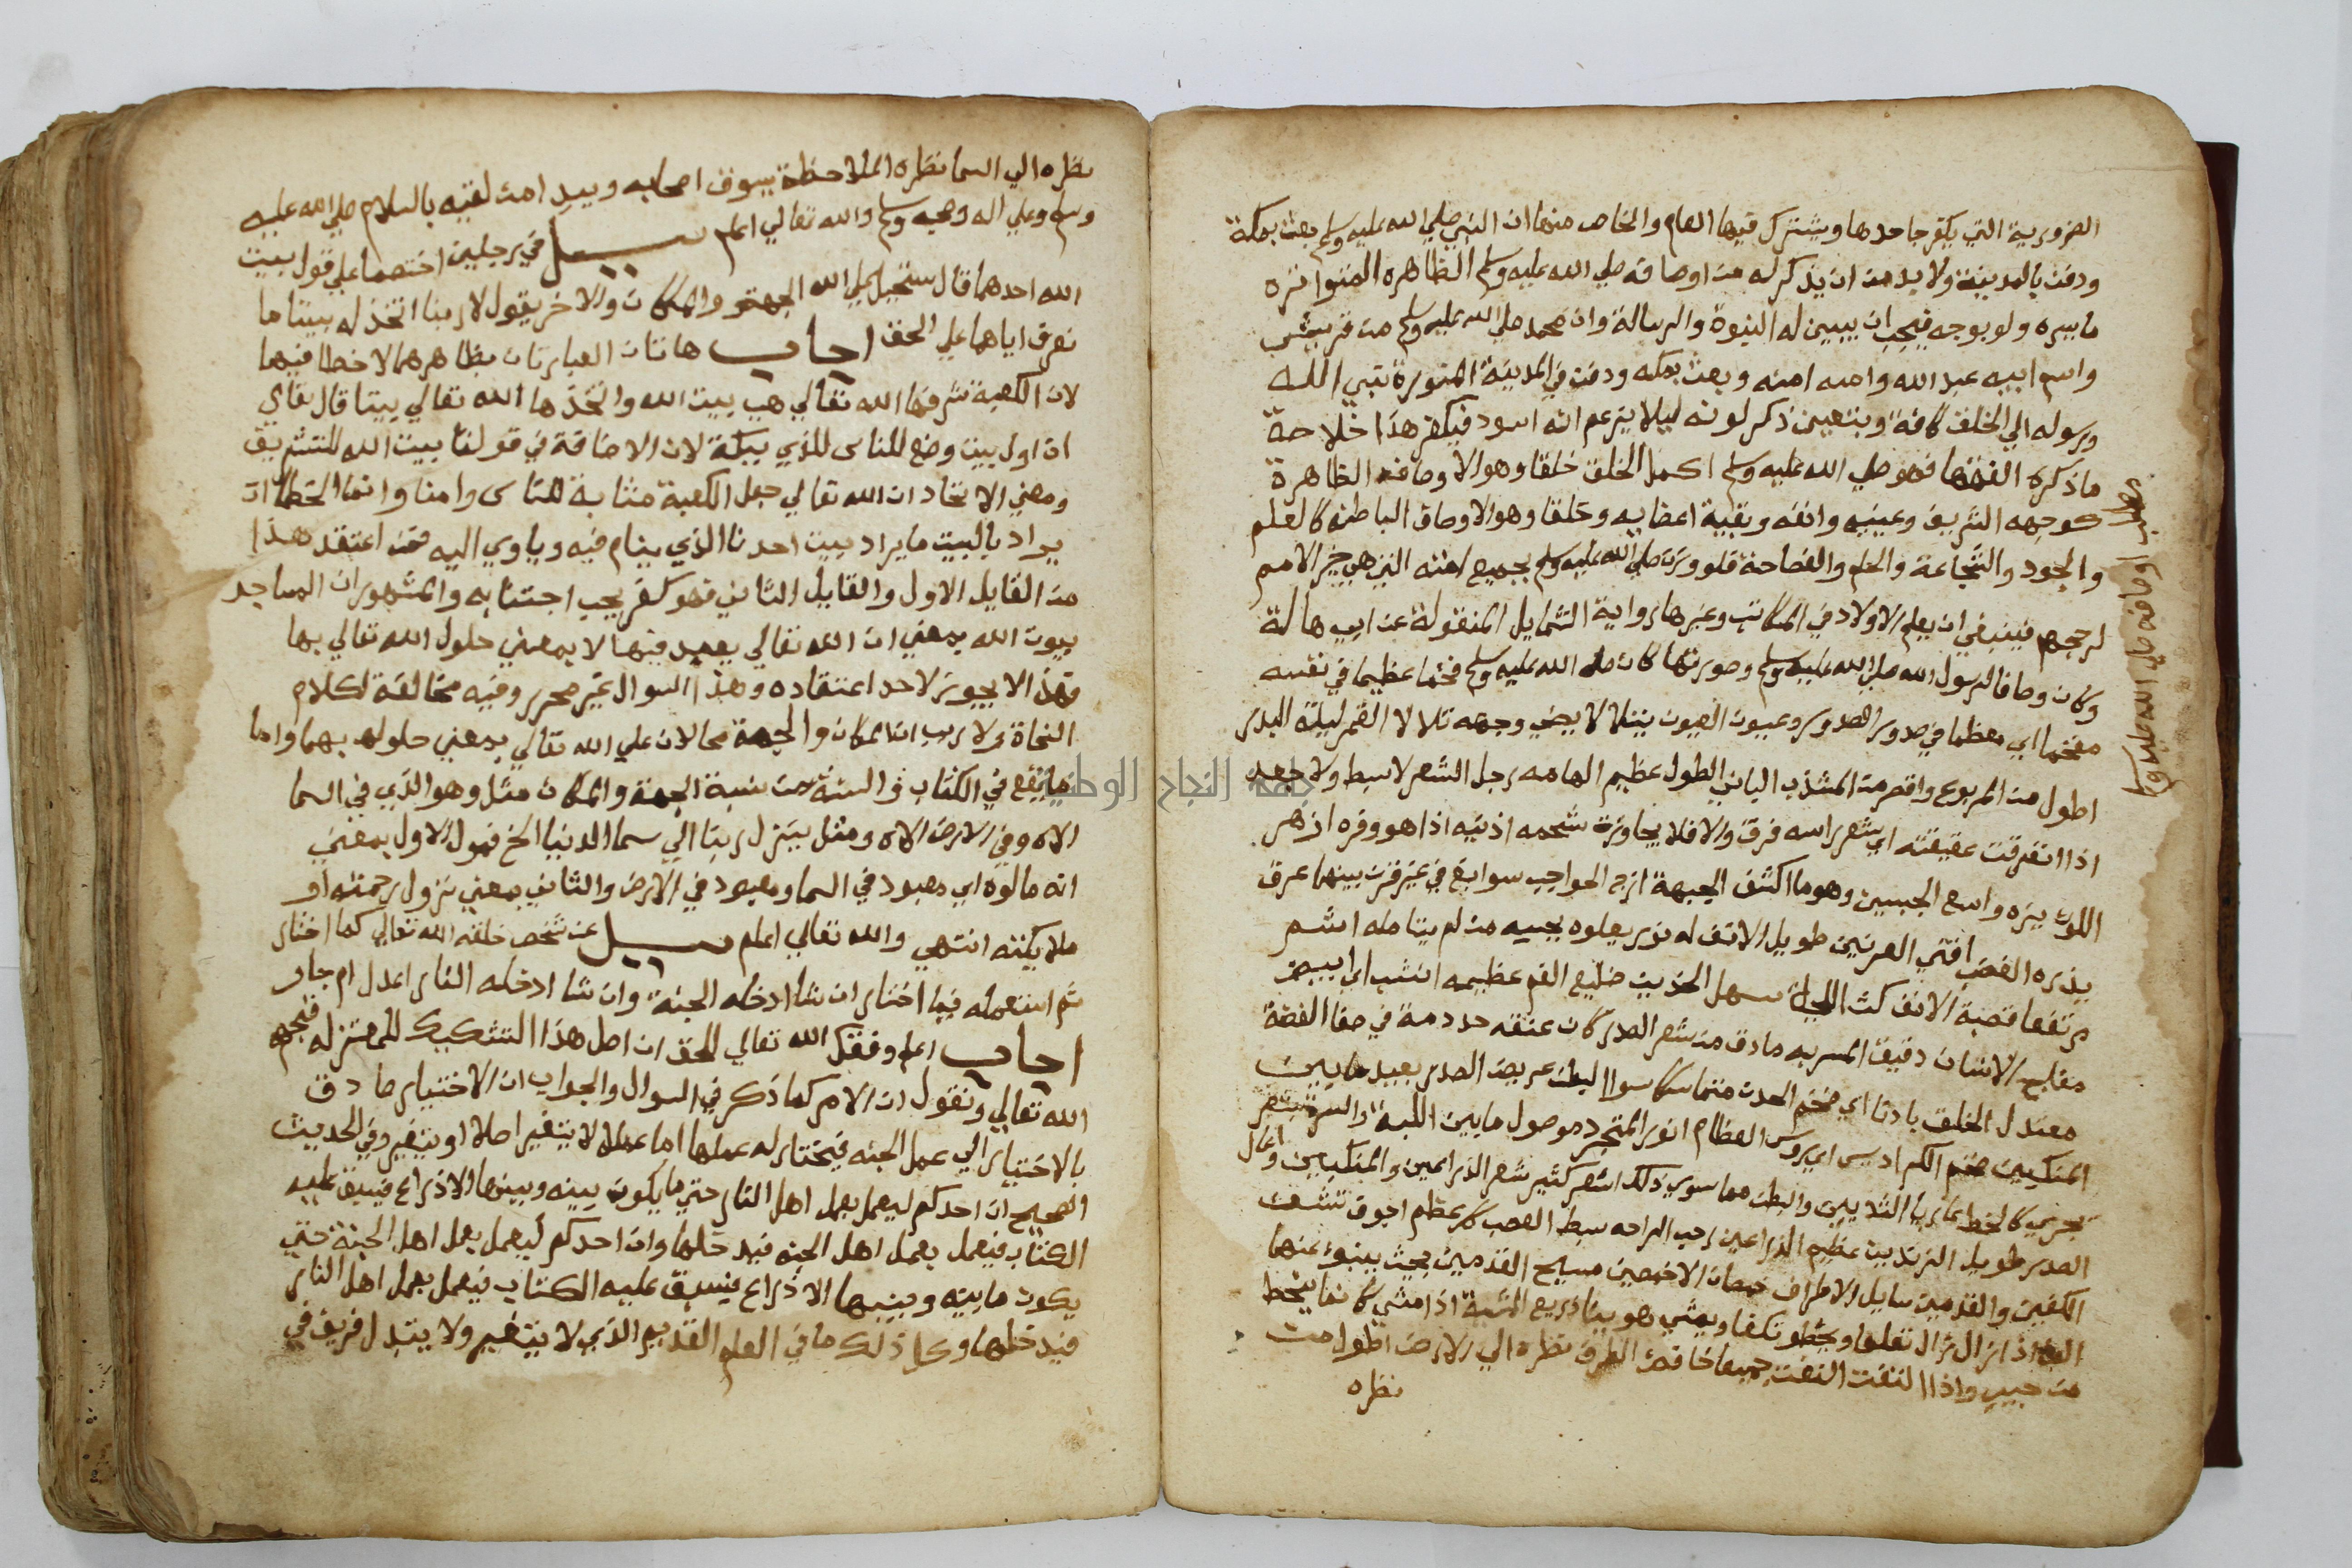 الضرورية التي يكفر جاحدها ويشترك فيها العام والخاص منها ان النبي صلي الله عليه وسلم بعث بمكة
ودفن بالمدينة ولا بد من ان يذكر له من اوصافه صلي الله عليه وسلم الظاهره المتواتره
ما يميزه ولو بوجه فيجب ان يبين له النبوة والرسالة وان محمد صلي الله عليه وسلم من قريش
واسم ابيه عبد الله وامه امنه وبعث بمكه ودفن في المدينة المنورة نبي الله
ورسوله الي الخلق كافة ويتعين ذكر لونه ليلا يزعم انه اسود فيكفر هذا خلاصة
ما ذكره الفقها فهو صلي الله عليه وسلم اكمل الخلق خلقا وهو الاوصافه الظاهرة
كوجهه الشريف وعينيه وانفه وبقية اعضايه وخلقا وهو الاوصاف الباطنه كالعلم
والجود والشجاعة والحلم والفصاحة فلو وزن صلي الله عليه وسلم بجميع امته التي هي خير الامم
لرجحهم فينبغي ان يعلم الاولاد في المكاتب وغيرها رواية الشمايل المنقولة عن ابي هالة
وكان وصافا لرسول الله صلي الله عليه وسلم وصورتها كان صلي الله عليه وسلم فخما عظيما في نفسه
مفخما اي معظما في صدور الصدور وعيون العيون يتلالا يضي وجهه تلالا القمر ليلة البدر
اطول من المربوع واقصر من المشذب الباين الطول عظيم الهامه رجل الشعر لا سبط ولا جعد
اذا انفرقت عقيقته اي شعر راسه فرق والا فلا يجاوز شحمه اذنيه اذا هو وفره ازهر
اللون نيره واسع الجبين وهو ما اكتنف الجبهة ازج الحواجب سوابغ في غير قرن بينهما عرق
يدره الغضب اقني العرنين طويل الانف له نور يعلوه يحسبه من لم يتامله اشم
مرتفعا قصبة الانف كث اللحية سهل الخدين ضليع الفم عظيمه اشنب ابيض
مفلج الاسنان دقيق المسربه ما دق من شعر الصدر كان عنقه جيد دمة في صفا الفضة
معتدل الخلق بادنا اي ضخم البدن متماسكا سوا البطن عريض الصدر بعيد ما بين
المنكبين ضخم الكراديس اي رووس العظام انور المتجرد موصول ما بين اللبة والسرة بشعر
يجري كالخط عاري الثديين والبطن مما سوي ذلك اشعر كثير شعر الذراعين والمنكبين واعالي
الصدر طويل الزندين عظيم الذراعين رحب الراحه سبط القصب كل عظم اجوف شثن
الكفين والقدمين سايل الاطراف خمصان الاخمصين مسيح القدمين بحيث ينبو عنهما
الما اذا زال زال تقلعا ويخطو تكفا ويمشي هونا ذريع المشية اذا مشي كانما ينحط
من صبب واذا التفت التفت جميعا خافض الطرف نظره الي الارض اطول من
نظره
مطلب اوصافه صلي الله عليه وسلم
نظره الي السما نظره الملاحظة يسوق اصحابه ويبدا من لقيه بالسلام صلي الله عليه
وسلم وعلي اله وصحبه وسلم والله تعالي اعلم سيل في رجلين اختصما علي قول بيت
الله احدهما قال يستحيل علي الله الجهة والمكان والاخر يقول لا ربنا اتخذ له بيتا ما
نعرف اياهما علي الحق اجاب هاتان العبارتان بظاهرهما لا خطا فيها
لان الكعبة شرفها الله تعالي هي بيت الله واتخذها الله تعالي بيتا قال تعالي
ان اول بيت وضع للناس للذي ببكة لان الاضافة في قولنا بيت الله للتشريف
ومعني الاتخاذ ان الله تعالي جعل الكعبة مثابة للناس وامنا وانما الخطا ان
يراد بالبيت ما يراد ببيت احدنا الذي ينام فيه وياوي اليه فمن اعتقد هذا
من القايل الاول والقايل الثاني فهو كفر يجب اجتنابه والمشهور ان المساجد
بيوت الله بمعني ان الله تعالي يعبد فيها لا بمعني حلول الله تعالي بها
فهذا لا يجوز لاحد اعتقاده وهذا السوال غير محرر وفيه مخالفة لكلام
النحاة ولا ريب ان المكان والجهة محالان علي الله تعالي بمعني حلوله بهما واما
ما يقع في الكتاب والسنة من نسبة الجهة والمكان مثل وهو الذي في السما
الاه وفي الارض الاه ومثل ينزل ربنا الي سما الدنيا الخ فهو الاول بمعني
انه مالوه اي معبود في السما ومعبود في الارض والثاني بمعني نزول رحمته او
ملايكته انتهي والله تعالي اعلم سيل عن شخص خلقه الله تعالي كما اختار
ثم استعمله فيما اختار ان شا ادخله الجنة وان شا ادخله النار اعدل ام جار
اجاب اعلم وفقك الله تعالي للحق ان اصل هذا التشكيك للمعتزله قبحهم
الله تعالي ونقول ان الامر كما ذكر في السوال والجواب ان الاختيار صادق
بالاختيار الي عمل الجنه فيختار له عملها اما عملا لا يتغير اصلا او يتغير وفي الحديث
الصحيح ان احدكم ليعمل بعمل اهل النار حتي ما يكون بينه وبينها الا ذراع فيسبق عليه
الكتاب فيعمل بعمل اهل الجنه فيدخلها وان احدكم ليعمل بعمل اهل الجنة حتي
يكون ما بينه وبينها الا ذراع فيسبق عليه الكتاب فيعمل بعمل اهل النار
فيدخلها وكل ذلك ما في العلم القديم الذي لا يتغير ولا يتبدل فريق في
جامعة النجاح الوطنية